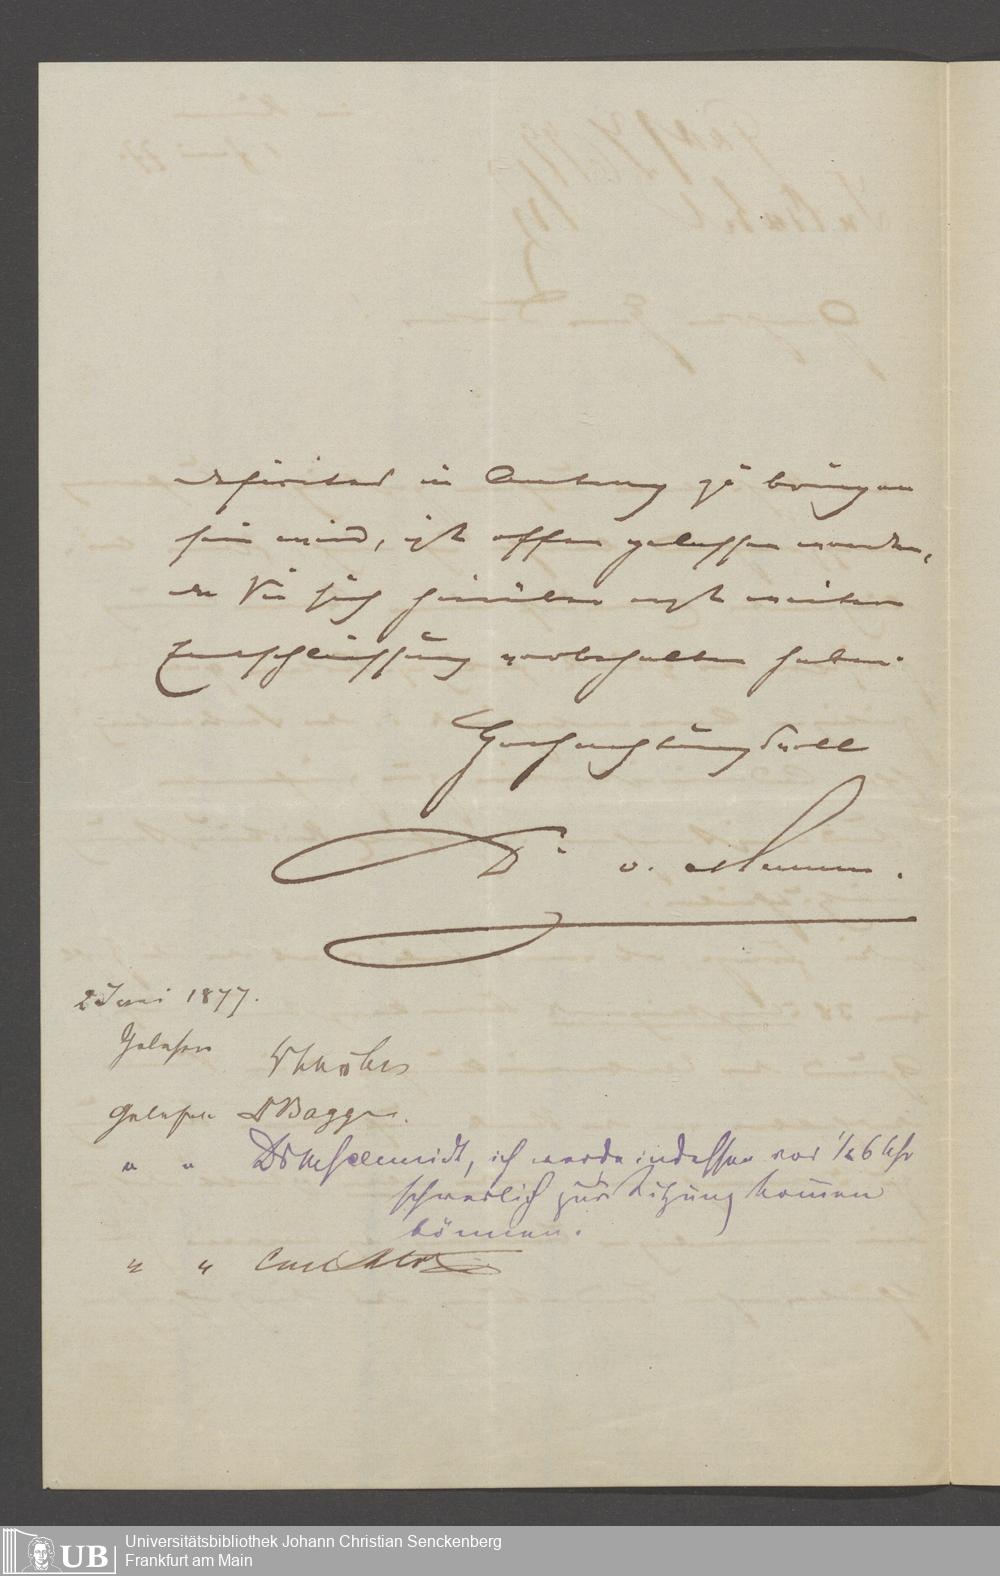 definitiv in Antrag zu bringen
sein wird, ist offen gelassen worden,
da Sie sich hierüber erst weitere
Entschließung vorbehalten haben.
Hochachtungsvoll
Dr. v. Mumm.
2 Juni 1877.
Gelesen
Gelesen Dr Bagge.
" " ich werde indessen vor ½ 6 Uhr
schwerlich zur Sitzung kommen
können.
" " Carl
UB
Universitätsbibliothek Johann Christian Senckenberg
Frankfurt am Main